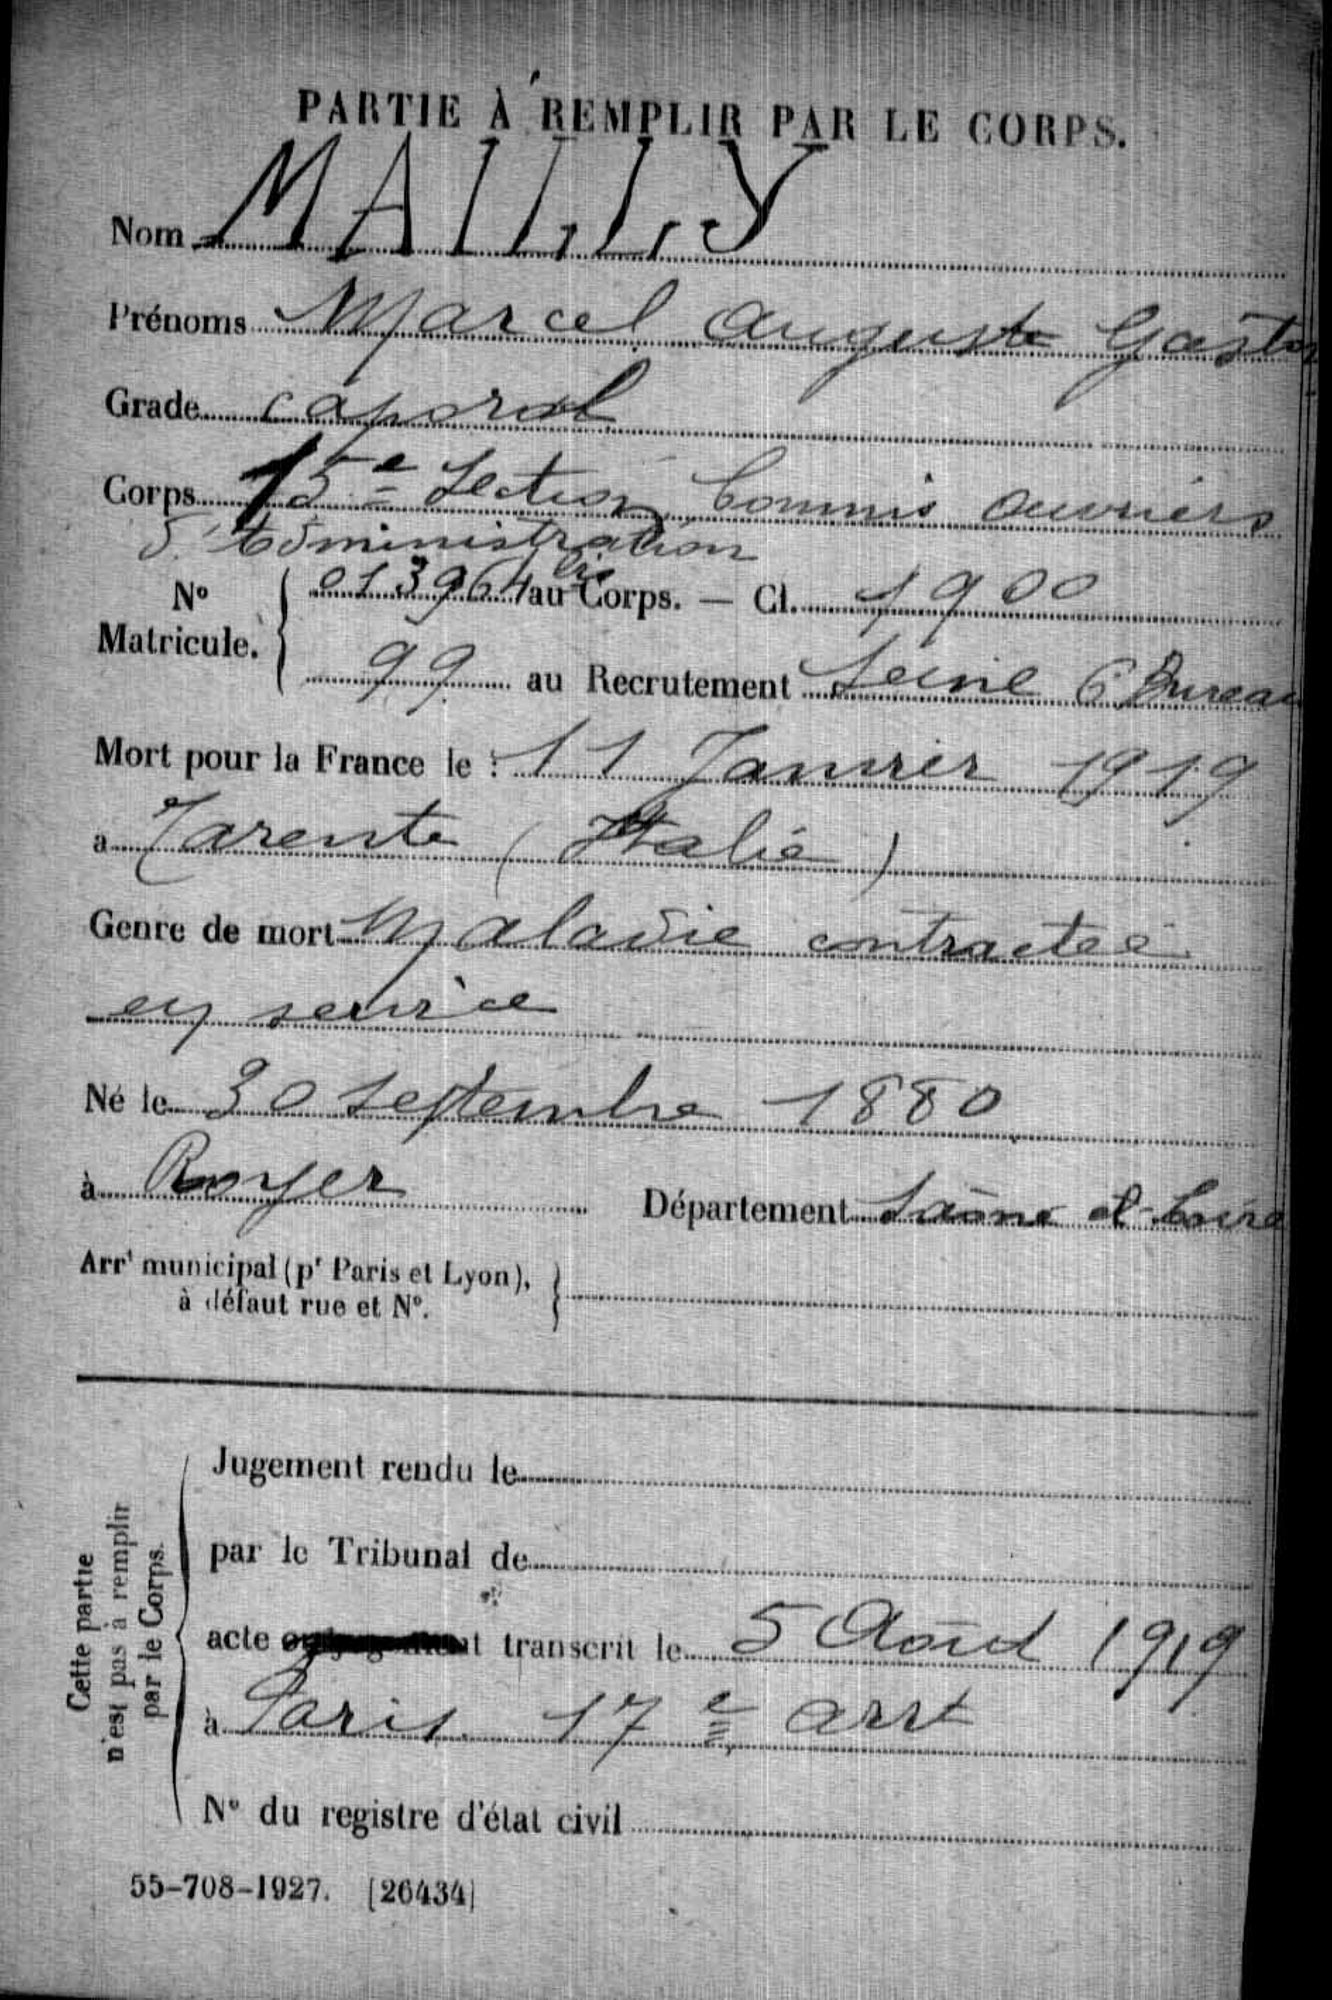 PARTIE À REMPLIR PAR LE CORPS.
Nom MAILLY
Prénoms Marcel Auguste Gaston
Grade caporal
Corps 15e Section Commis ouvriers
d'Administration
No Matricule. 013964 bis au Corps. — Cl. 1900
99 au Recrutement Seine 6 Bureau
Mort pour la France le : 11 Janvier 1919
a Tarente (Italie)
Genre de mort Maladie contractée
en service
Né le 30 septembre 1880
à Royer Département Saône et Loire
Arrt municipal (pr Paris et Lyon),
à défaut rue et No.
Cette partie
n'est pas à remplir
par le Corps.
Jugement rendu le
par le Tribunal de
acte transcrit le 5 Août 1919
à Paris 17e arrt
No du registre d'état civil
55-708-1927. [26434]